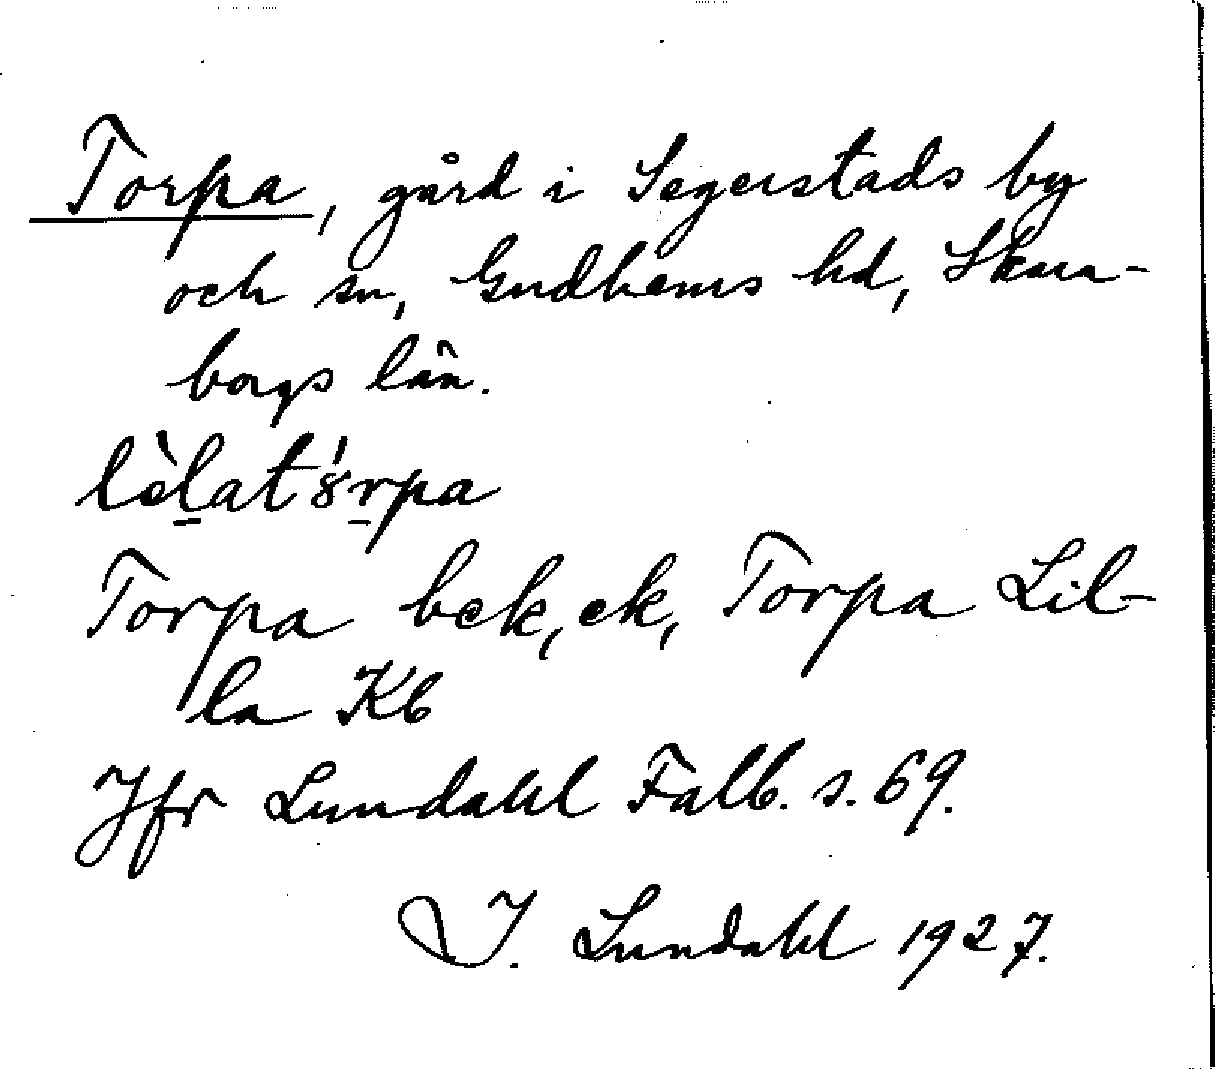 Torpa, gård i Segerstads by
och sn, Gudhems hd, Skara-
borgs län.
lèlat'ɤrpa
Torpa bek, ek, Torpa Lil-
la Kb
Jfr Lundahl Falb. s. 69.
I. Lundahl 1927.